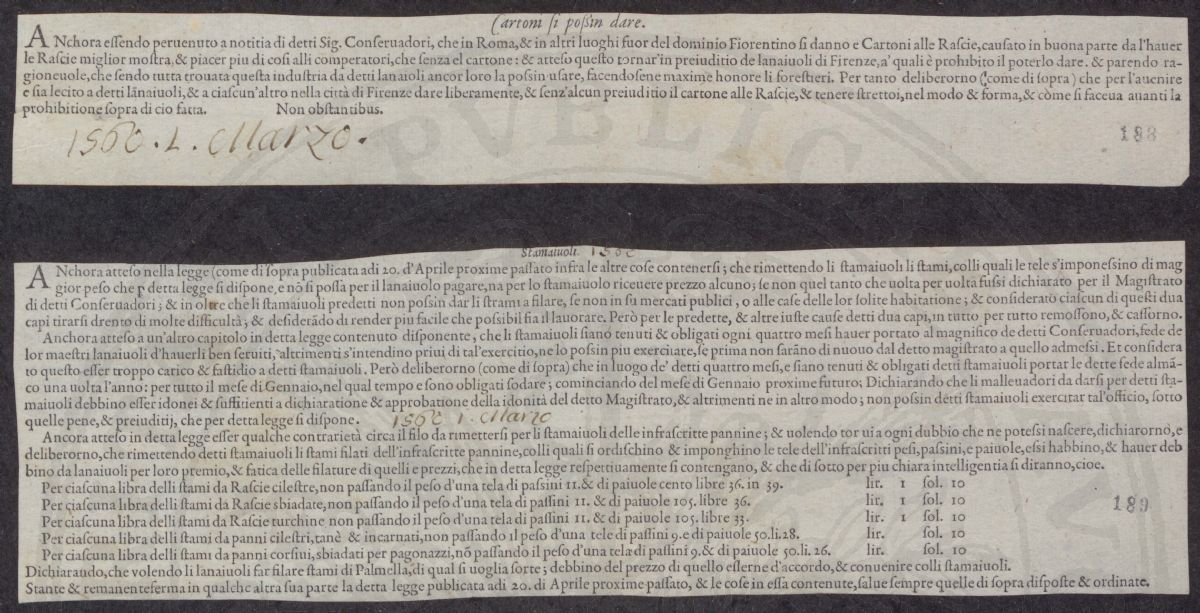 Cartoni si poßin dare.
ANchora essendo peruenuto a notitia di detti Sig. Conseruadori, che in Roma, & in altri luoghi fuor del dominio Fiorentino si danno e Cartoni alle Rascie, causato in buona parte da l'hauer
le Rascie miglior mostra, & piacer piu di cosi alli comperatori, che senza el cartone: & atteso questo tornar'in preiuditio de lanaiuoli di Firenze, a' quali è prohibito il poterlo dare. & parendo ra-
gioneuole, che sendo tutta trouata questa industria da detti lanaioli ancor loro la possin usare, facendosene maxime honore li forestieri. Per tanto deliberorno (come di sopra) che per l'auenire
e sia lecito a detti lãnaiuoli, & a ciascun'altro nella città di Firenze dare liberamente, & senz'alcun preiuditio il cartone alle Rascie, & tenere strettoi, nel modo & forma, & còme si faceua auanti la
prohibitione sopra di cio fatta. Non obstantibus.
1560. 1. Marzo.
188
PVBLIC
Stamaiuoli 1560
ANchora atteso nella legge (come di sopra publicata adi 20. d'Aprile proxime passato infra le altre cose contenersi; che rimettendo li stamaiuoli li stami, colli quali le tele s'imponessino di mag
gior peso che p detta legge si dispone, e nõ si possa per il lanaiuolo pagare, na per lo stamaiuolo riceuere prezzo alcuno; se non quel tanto che uolta per uolta fussi dichiarato per il Magistrato
di detti Conseruadori; & in oltre che li stamaiuoli predetti non possin dar li strami a filare, se non in su mercati publici, o alle case delle lor solite habitatione; & considerato ciascun di questi dua
capi tirarsi drento di molte difficultà; & desiderãdo di render piu facile che possibil sia il lauorare. Però per le predette, & altre iuste cause detti dua capi, in tutto per tutto remossono, & cassorno.
Anchora atteso a un'altro capitolo in detta legge contenuto disponente, che li stamaiuoli siano tenuti & obligati ogni quattro mesi hauer portato al magnifico de detti Conseruadori, fede de
lor maestri lanaiuoli d'hauerli ben seruiti, altrimenti s'intendino priui di tal'exercitio, ne lo possin piu exercitare, se prima non sarãno di nuouo dal detto magistrato a quello admessi. Et considera
to questo esser troppo carico & fastidio a detti stamaiuoli. Però deliberorno (come di sopra) che in luogo de' detti quattro mesi, e siano tenuti & obligati detti stamaiuoli portar le dette fede almã-
co una uolta l'anno: per tutto il mese di Gennaio, nel qual tempo e sono obligati sodare; cominciando del mese di Gennaio proxime futuro; Dichiarando che li malleuadori da darsi per detti sta-
maiuoli debbino esser idonei & suffitienti a dichiaratione & approbatione della idonità del detto Magistrato, & altrimenti ne in altro modo; non possin detti stamaiuoli exercitar tal'officio, sotto
quelle pene, & preiuditij, che per detta legge si dispone. 1560 1. Marzo
Ancora atteso in detta legge esser qualche contrarietà circa il filo da rimettersi per li stamaiuoli delle infrascritte pannine; & uolendo tor uia ogni dubbio che ne potessi nascere, dichiarorno, e
deliberorno, che rimettendo detti stamaiuoli li stami filati dell'infrascritte pannine, colli quali si ordischino & imponghino le tele dell'infrascritti pesi, passini, e paiuole, essi habbino, & hauer deb
bino da lanaiuoli per loro premio, & fatica delle filature di quelli e prezzi, che in detta legge respettiuamente si contengano, & che di sotto per piu chiara intelligentia si diranno, cioe.
Per ciascuna libra delli stami da Rascie cilestre, non passando il peso d'una tela di passini 11. & di paiuole cento libre 36. in 39. lir. 1 sol. 10
Per ciascuna libra delli stami da Rascie sbiadate, non passando il peso d'una tela di passini 11. & di paiuole 105. libre 36. lir. 1 sol. 10
Per ciascuna libra delli stami da Rascie turchine non passando il peso d'una tela di passini 11. & di paiuole 105. libre 33. lir. 1 sol. 10
Per ciascuna libra delli stami da panni cilestri, tanè & incarnati, non passando il peso d'una tele di passini 9. e di paiuole 50. li. 28. lir. sol. 10
Per ciascuna libra delli stami da panni corsiui, sbiadati per pagonazzi, nõ passando il peso d'una tela di passini 9. & di paiuole 50. li. 26. lir. sol. 10
189
Dichiarando, che volendo li lanaiuoli far filare stami di Palmella, di qual si uoglia sorte; debbino del prezzo di quello esserne d'accordo, & conuenire colli stamaiuoli.
Stante & remanente ferma in qualche altra sua parte la detta legge publicata adi 20. di Aprile proxime passato, & le cose in essa contenute, salue sempre quelle di sopra disposte & ordinate.